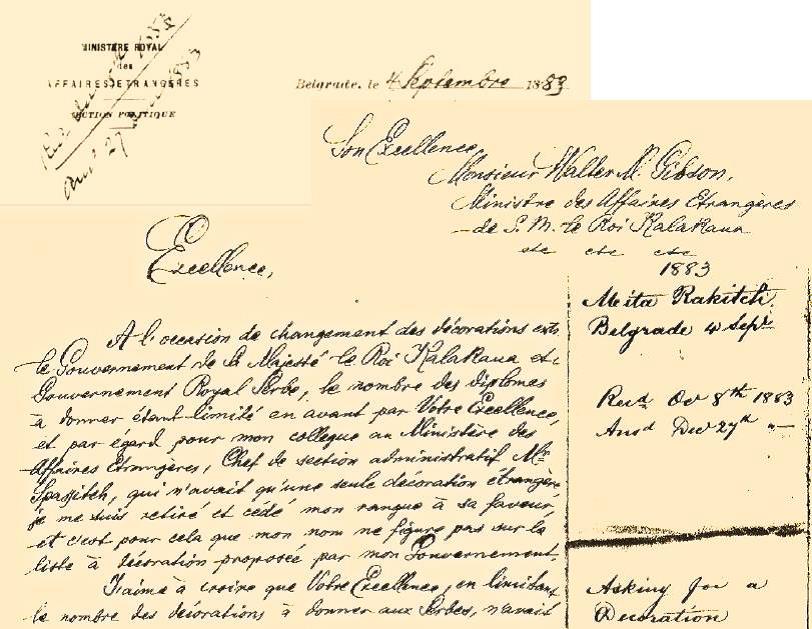 MINISTÈRE ROYAL
des
AFFAIRES ETRANGÈRES
SECTION POLITIQUE
Belgrade, le 4 Septembre 1883
Son Excellence,
Monsieur Walter M. Gibson,
Ministre des Affaires Etrangères
de S. M. le Roi Kalakaua
etc etc etc
Excellence,
A l'occasion de changement des décorations entre
le Gouvernement de Sa Majesté le Roi Kalakaua et
Gouvernement Royal Serbe, le nombre des diplomes
à donner étant limité en avant par Votre Excellence,
et par egard pour mon collegue au Ministère des
Affaires Etrangères, Chef de section administratif Mr
Spassitch, qui n'avait qu'une seule décoration étrangère
je me suis retiré et cédé mon rangue à sa faveur,
et c'est pour cela que mon nom ne figure pas sur la
liste à décoration proposée par mon Gouvernement.
J'aime à croire que Votre Excellence, en limitant
le nombre des décorations à donner aux Serbes, n'avait
1883
Meita Rakitch
Belgrade 4 Sept
Recd Oct 8th 1883
Ansd Dec 27th " —
Asking for a
Decoration